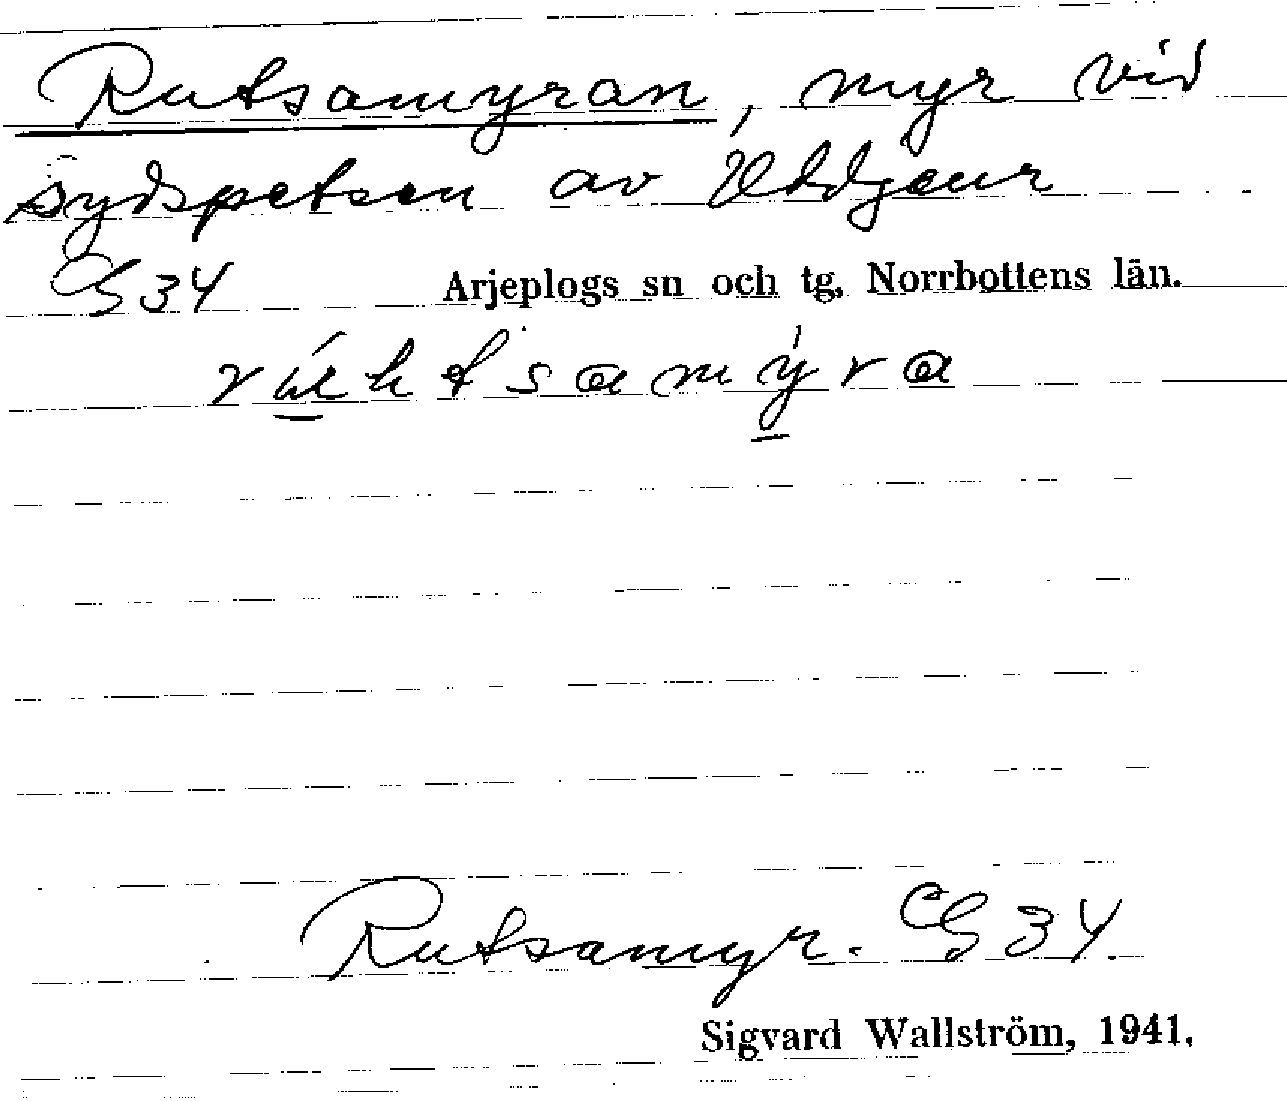 Rutsamyran, myr vid
sydspetsen av Uddjaur
GS 34 Arjeplogs sn och tg, Norrbottens län.
Rutsamyr. GS 34.
Sigvard Wallström, 1941.